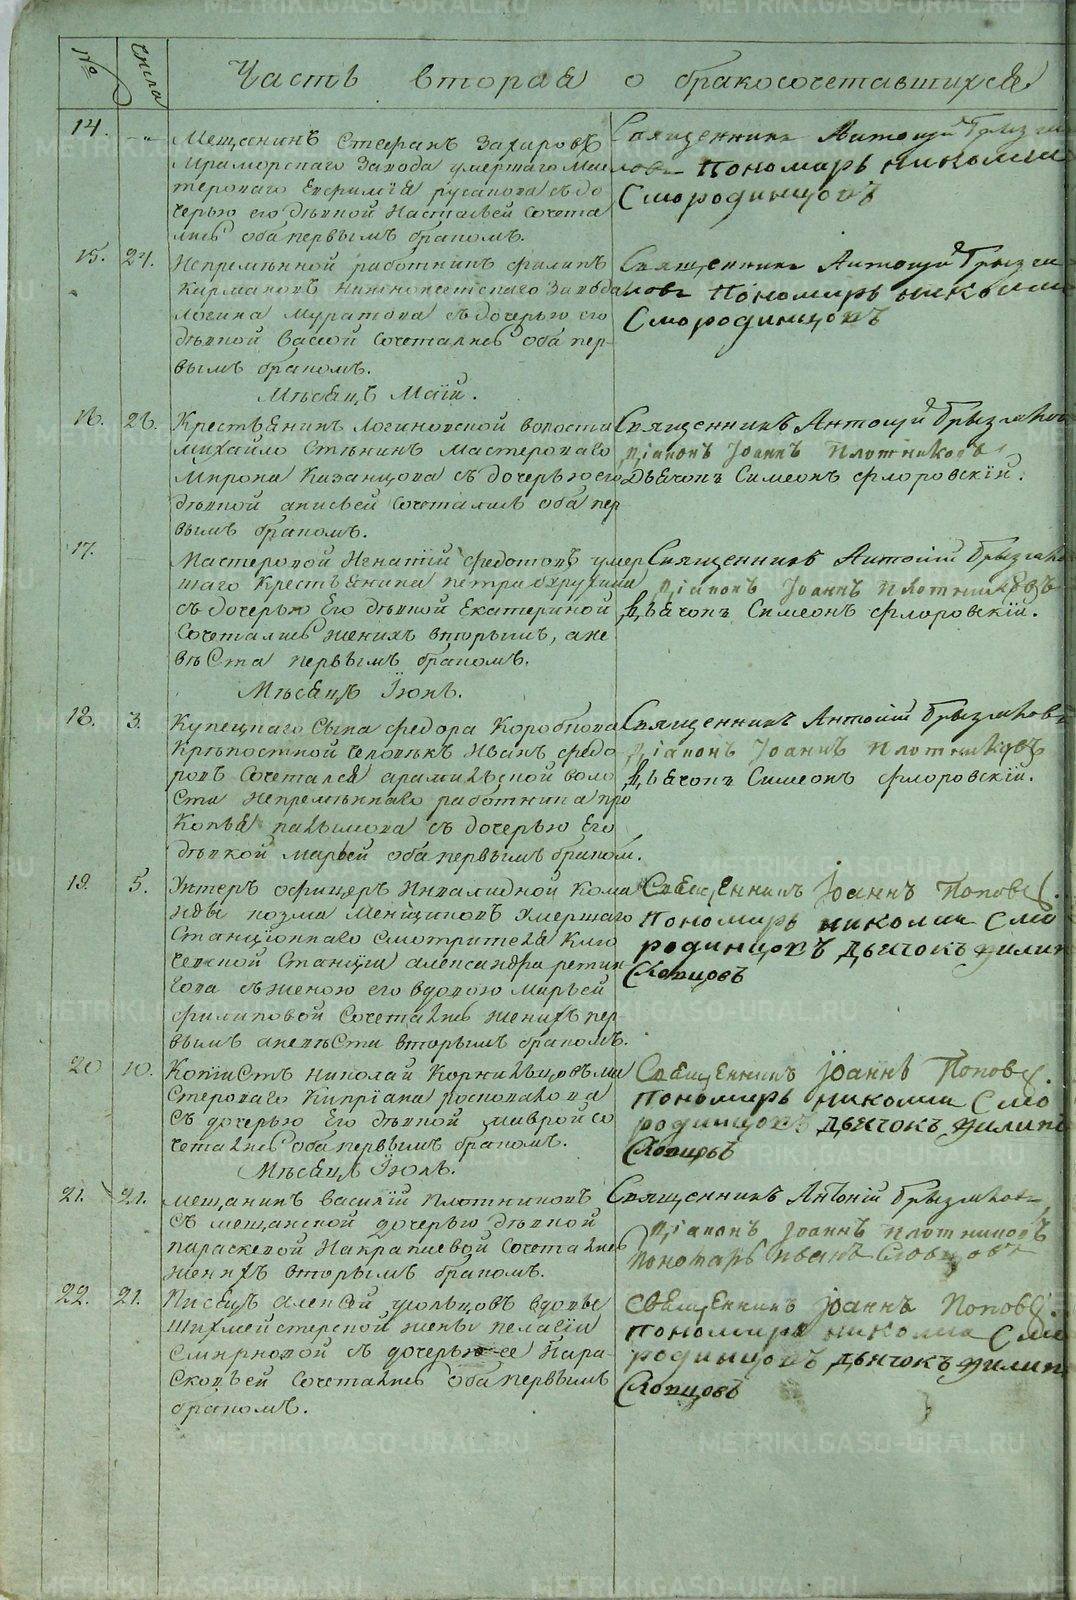 № числа Часть вторая о бракосочетавшихся
14. Мещанинъ Стефанъ Захаровъ
Мраморскаго Завода умершаго Мас
тероваго Евфимія русанова съ до
черью его дѣвкой Настасьей сочета
лись оба первымъ бракомъ.
Священникъ Антоній Брызга
ловъ Пономарь николай
Смородинцовъ
15. 24. Непремѣнной работникъ филипъ
Логина Муратова съ дочерью его
дѣвкой Васой сочетались оба пер-
вымъ бракомъ.
Священникъ Антоній Брызга
ловъ Пономарь николай
Смородинцовъ
Мѣсяцъ Маій.
16. 26. Крестьянинъ логиновской волости
михайло Стѣнинъ Мастероваго
Мирона Казанцова съ дочерью его
дѣвкой анисьей сочетались оба пер
вымъ бракомъ.
Священникъ Антоній Брызгаловъ
Діаконъ Іоаннъ Плотниковъ
Дьячокъ Симеонъ флоровскій.
17. Мастеровой Игнатій федотовъ умер
шаго Крестьянина петра
съ дочерью Его дѣвкой Екатериной
Сочетались женихъ вторымъ, а не
вѣСта первымъ бракомъ.
Священникъ Антоній Брызгало
Діаконъ Іоаннъ Плотниковъ
Дьячокъ Симеонъ флоровскій.
Мѣсяцъ Іюнь.
18. 3. Купецкаго Сына федора Коробкова
Крѣпостной человѣкъ Иванъ федо
ровъ Сочетался арамильской воло
сти Непремѣннаго работника про
Копья пальшова съ дочерью Его
дѣвкой марьей оба первымъ браком.
Священникъ Антоній Брызгаловъ
Діаконъ Іоаннъ Плотниковъ
Дьячокъ Симеонъ флоровскій.
19. 5. Унтеръ офицеръ Инвалидной Кома
нды козма Менщиковъ умершаго
Станціоннаго Смотрителя Клю
чевской Станціи александра
съ женою его вдовою Марьей
филиповой Сочетались женихъ пер-
вымъ а невѣСта вторымъ бракомъ.
Священникъ Іоаннъ Поповъ.
Пономарь николай Смо
родинцовъ дьячокъ филип
Словцовъ
20 10. КопіиСтъ николай Корнильцовъ ма
Стероваго Кипріана росковалова
Съ дочерью Его дѣвкой маврой со
четались оба первымъ бракомъ.
Священникъ Іоаннъ Поповъ.
Пономарь николай Смо
родинцовъ дьячокъ филипъ
Словцовъ
Мѣсяцъ Іюль.
21. 21. мещанинъ василій плотниковъ
Съ мещанской дочерью дѣвкой
параскевой Панкратьевой Сочетались
женихъ вторымъ бракомъ.
Священникъ Антоній Брызгаловъ
Діаконъ Іоаннъ плотниковъ
Пономарь иванъ Словцовъ
22. 21. Писецъ алексѣй усольцовъ вдовы
Шихмейстерской жены пелагіи
Смирновой съ дочерью ее Пара-
Сковьей Сочетались оба первымъ
бракомъ.
Священникъ Іоаннъ Поповъ.
Пономарь николай Смо
родинцовъ дьячокъ филип
Словцовъ
METRIKI.GASO-URAL.RU